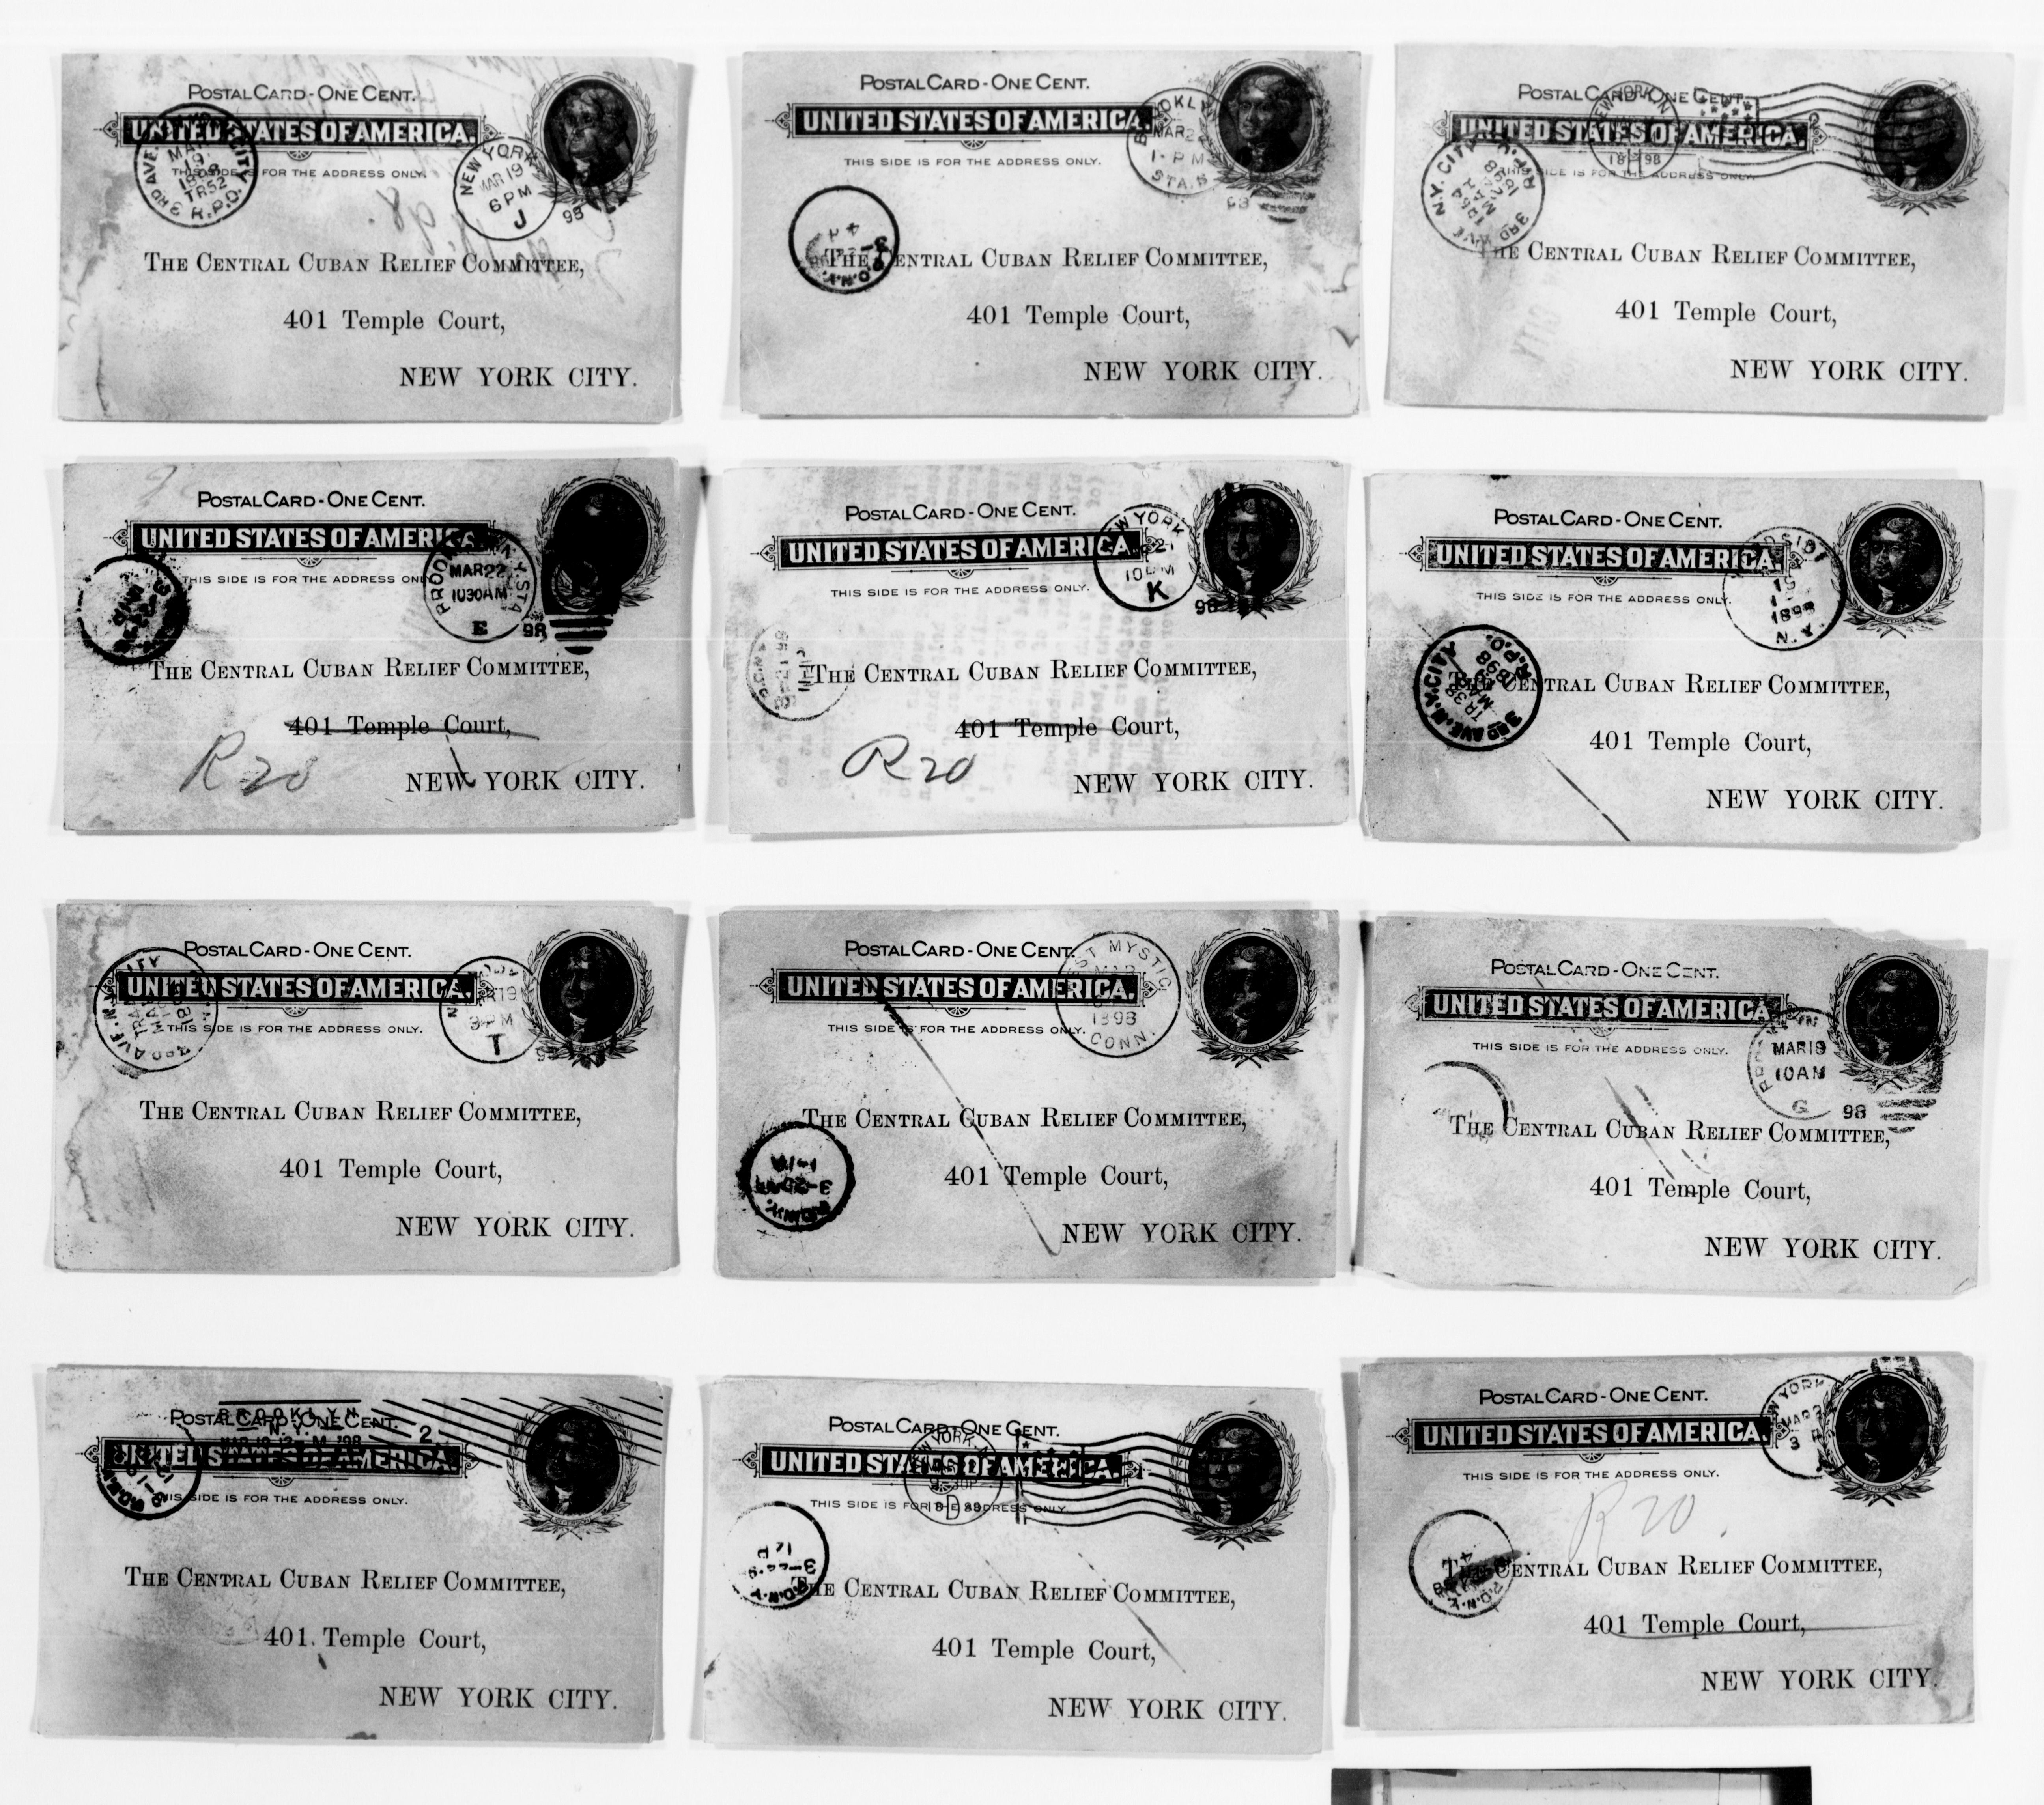 POSTAL CARD - ONE CENT.
UNITED STATES OF AMERICA.
THIS SIDE IS FOR THE ADDRESS ONLY.
3RD AVE. CITY R.P.O.
MAR
19
1898
TR52
NEW YORK
MAR 19
6 PM
J
98
THE CENTRAL CUBAN RELIEF COMMITTEE,
401 Temple Court,
NEW YORK CITY.
POSTAL CARD - ONE CENT.
UNITED STATES OF AMERICA.
THIS SIDE IS FOR THE ADDRESS ONLY.
MAR
1 - PM
STA.
98
THE CENTRAL CUBAN RELIEF COMMITTEE,
401 Temple Court,
NEW YORK CITY.
POSTAL CARD - ONE CENT.
UNITED STATES OF AMERICA.
THIS SIDE IS FOR THE ADDRESS ONLY.
3RD AVE N.Y. CITY R.P.O.
THE CENTRAL CUBAN RELIEF COMMITTEE,
401 Temple Court,
NEW YORK CITY.
POSTAL CARD - ONE CENT.
UNITED STATES OF AMERICA.
THIS SIDE IS FOR THE ADDRESS ONLY.
MAR 22
1030AM
E
98
THE CENTRAL CUBAN RELIEF COMMITTEE,
401 Temple Court,
R20
NEW YORK CITY.
POSTAL CARD - ONE CENT.
UNITED STATES OF AMERICA.
THIS SIDE IS FOR THE ADDRESS ONLY.
NEW YORK
K
98
THE CENTRAL CUBAN RELIEF COMMITTEE,
401 Temple Court,
R20
NEW YORK CITY.
POSTAL CARD - ONE CENT.
UNITED STATES OF AMERICA.
THIS SIDE IS FOR THE ADDRESS ONLY.
1898
3RD AVE. N.Y. CITY R.P.O.
TR38
MAR
1898
THE CENTRAL CUBAN RELIEF COMMITTEE,
401 Temple Court,
NEW YORK CITY.
POSTAL CARD - ONE CENT.
UNITED STATES OF AMERICA.
THIS SIDE IS FOR THE ADDRESS ONLY.
3 PM
T
THE CENTRAL CUBAN RELIEF COMMITTEE,
401 Temple Court,
NEW YORK CITY.
POSTAL CARD - ONE CENT.
UNITED STATES OF AMERICA.
THIS SIDE IS FOR THE ADDRESS ONLY.
MYSTIC,
1898
CONN.
THE CENTRAL CUBAN RELIEF COMMITTEE,
401 Temple Court,
NEW YORK CITY.
POSTAL CARD - ONE CENT.
UNITED STATES OF AMERICA.
THIS SIDE IS FOR THE ADDRESS ONLY.
MAR 19
10AM
G
98
THE CENTRAL CUBAN RELIEF COMMITTEE,
401 Temple Court,
NEW YORK CITY.
BROOKLYN
N.Y.
2
POSTAL CARD - ONE CENT.
UNITED STATES OF AMERICA.
THIS SIDE IS FOR THE ADDRESS ONLY.
THE CENTRAL CUBAN RELIEF COMMITTEE,
401 Temple Court,
NEW YORK CITY.
POSTAL CARD - ONE CENT.
UNITED STATES OF AMERICA.
THIS SIDE IS FOR THE ADDRESS ONLY.
D
THE CENTRAL CUBAN RELIEF COMMITTEE,
401 Temple Court,
NEW YORK CITY.
POSTAL CARD - ONE CENT.
UNITED STATES OF AMERICA.
THIS SIDE IS FOR THE ADDRESS ONLY.
R20
THE CENTRAL CUBAN RELIEF COMMITTEE,
401 Temple Court,
NEW YORK CITY.